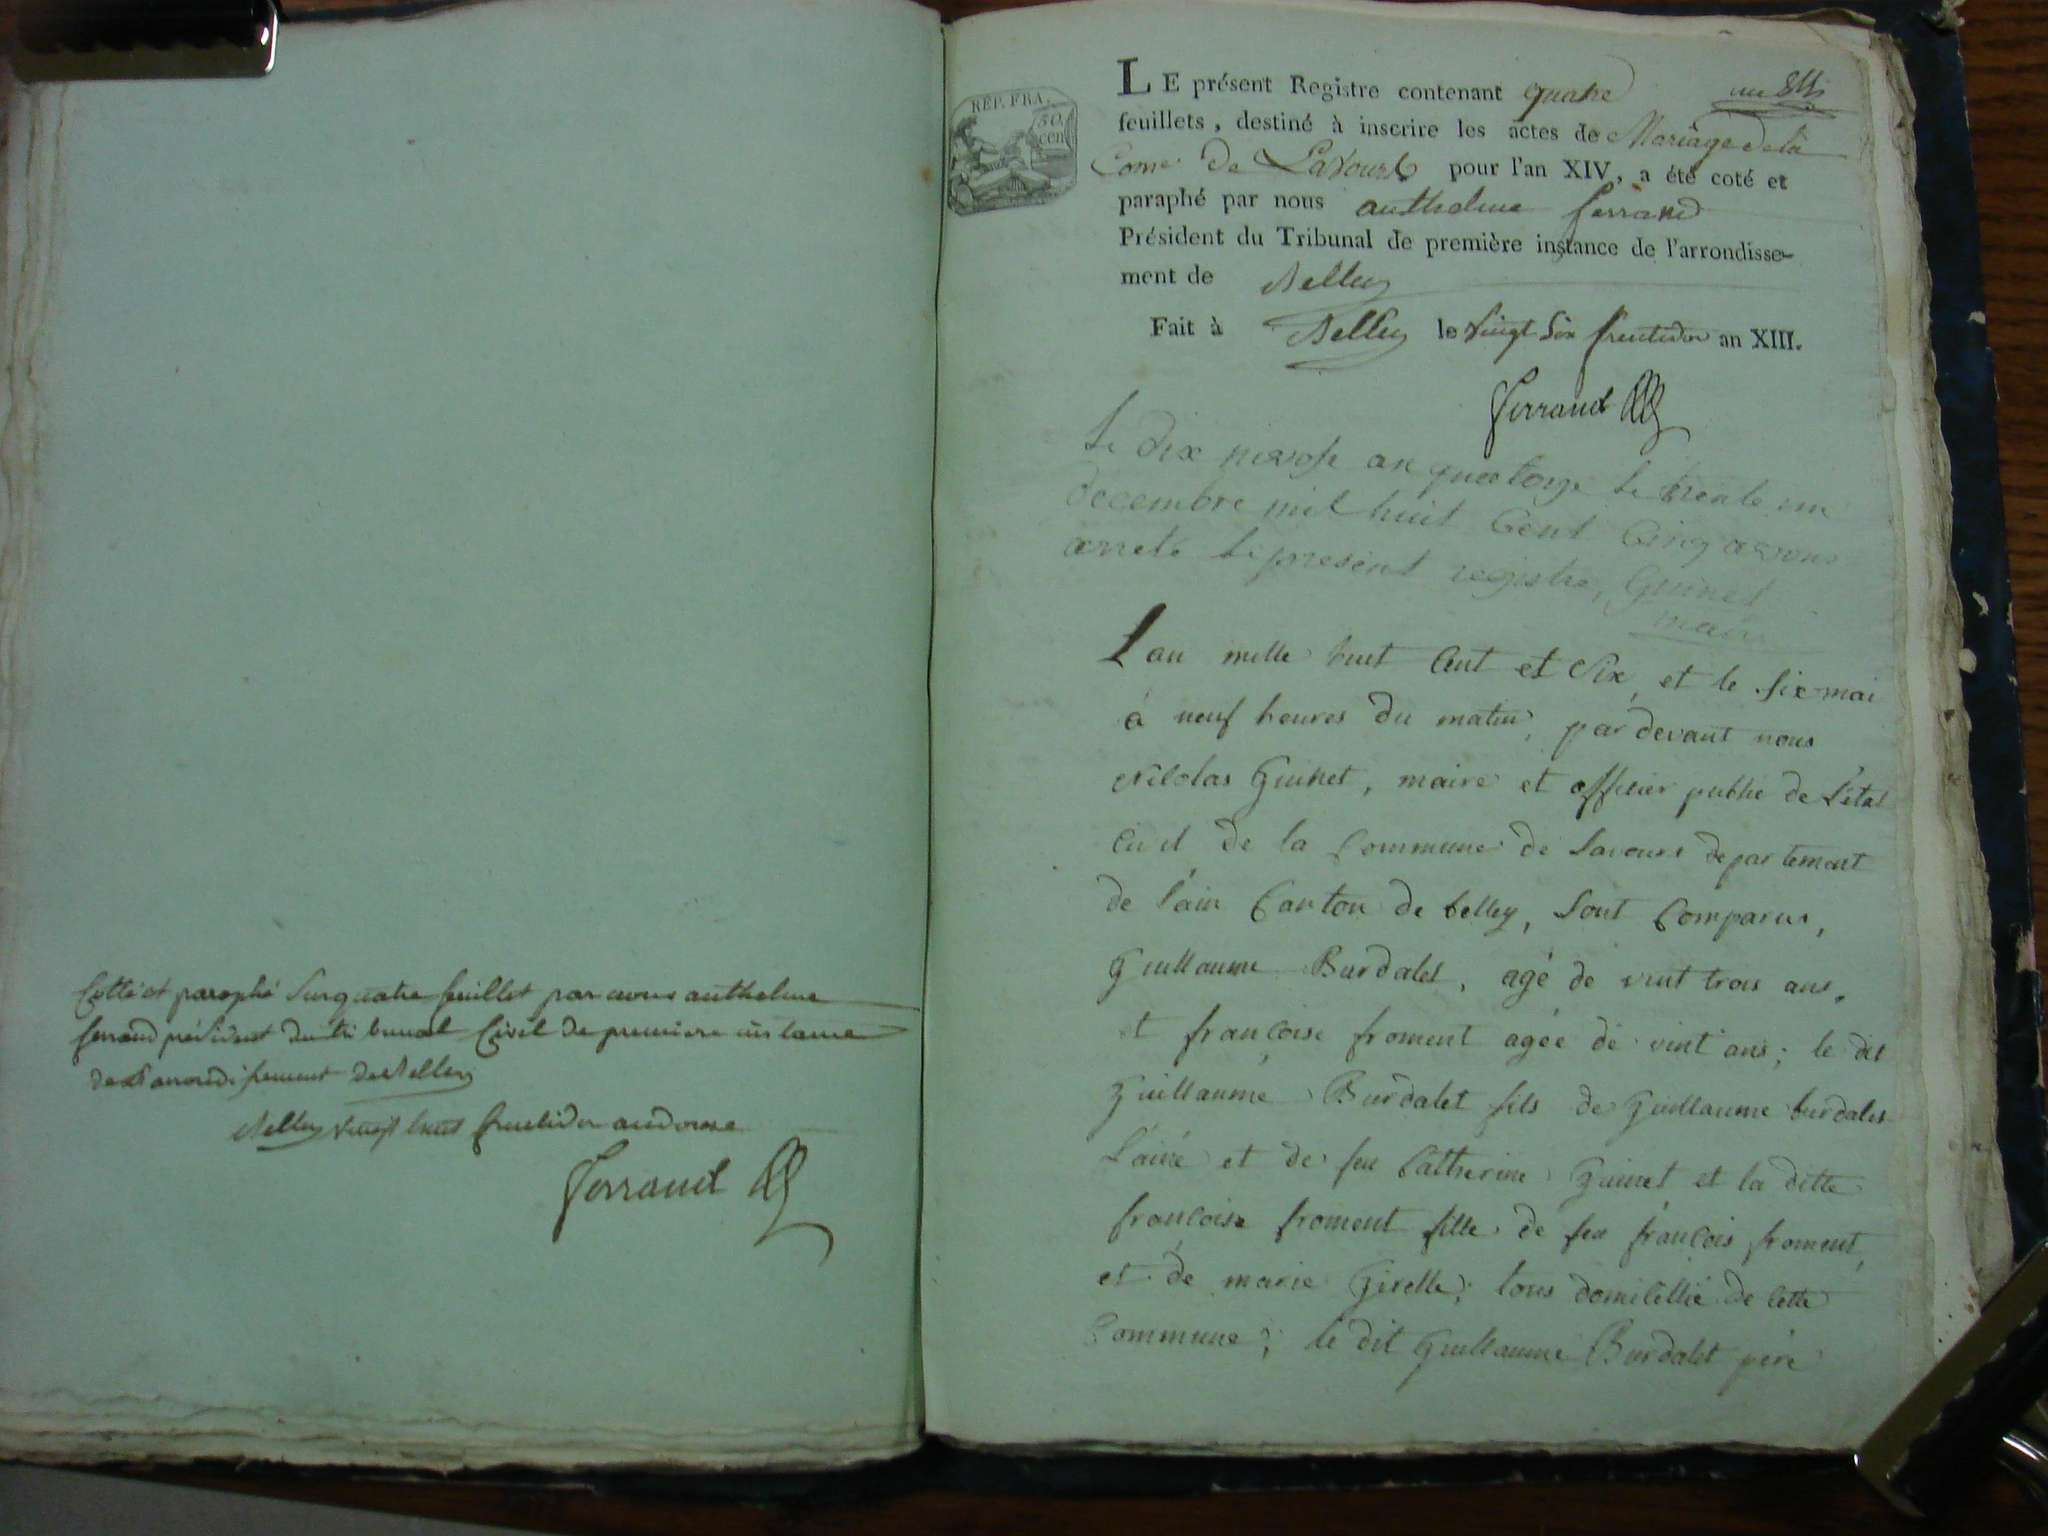 Cotté et paraphé Sur quatre feuillet par nous anthelme
ferrand président du tribunal Civil de premiere instance
de L'arrondissement de Belley
Belley vingt huit fructidor an douze
Ferrand
REP. FRA.
50
cent
LE présent Registre contenant quatre
feuillets, destiné à inscrire les actes de Mariage de la
Come de Lavours pour l'an XIV, a été coté et
paraphé par nous anthelme ferrand
Président du Tribunal de première instance de l'arrondisse-
ment de Belley
Fait à Belley le vingt Six fructidor an XIII.
Ferrand
Le dix nivose an quatorze le trente un
decembre mil huit Cent Cinq avons
arreté le present registre, Guinet
maire
L'an mille huit Cent et Six, et le six mai
à neuf heures du matin, par devant nous
Nicolas Guinet, maire et officier public de l'état
Civil de la Commune de Lavours departement
de l'ain Canton de belley, Sont Comparus,
Guillaume Burdalet, agé de vint trois ans,
et françoise froment agée de vint ans; le dit
Guillaume Burdalet fils de Guillaume burdalet
L'ainé et de feu Catherine Guinet et la ditte
françoise froment fille de feu françois froment,
et de marie Girelle; tous domicillié de Cette
Commune; le dit Guillaume Burdalet père